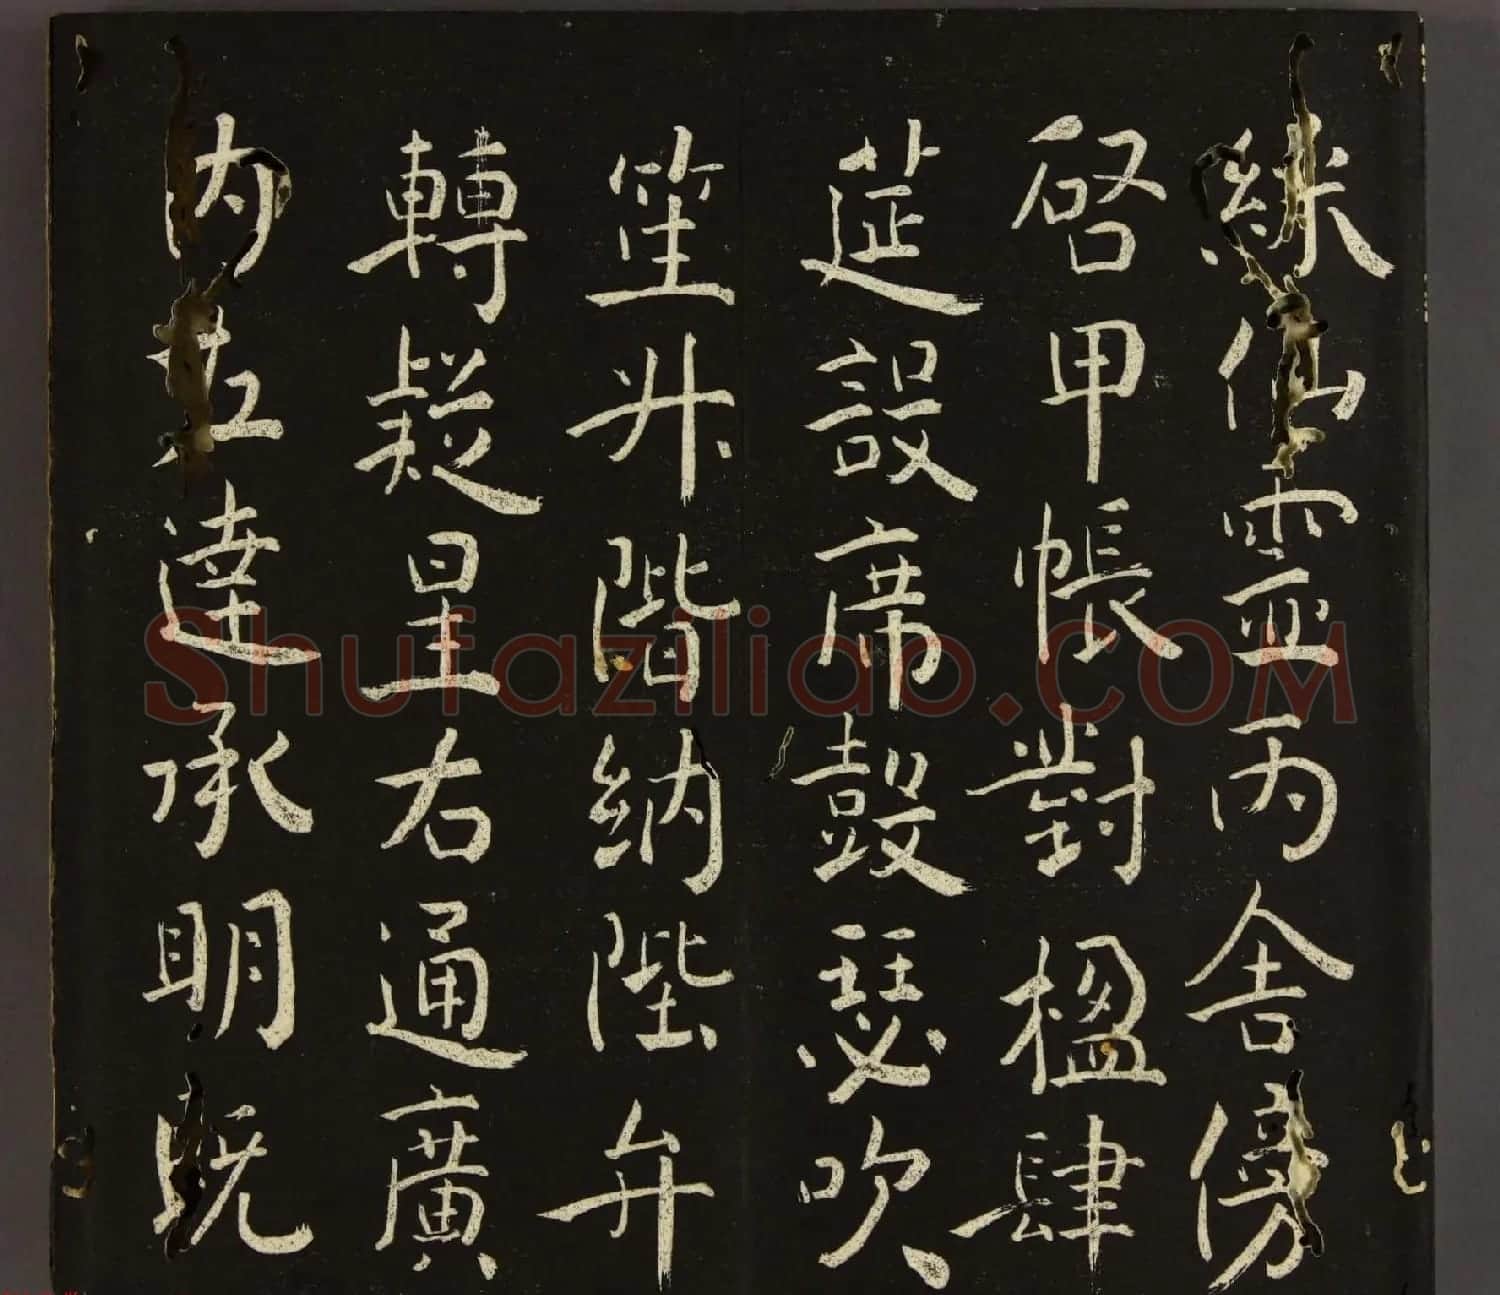 綵仙靈丙舍傍
啓甲帳對楹肆
莚設席鼓瑟吹
笙升階納陛弁
轉疑星右通廣
內左達承明既
Shufaziliao.COM